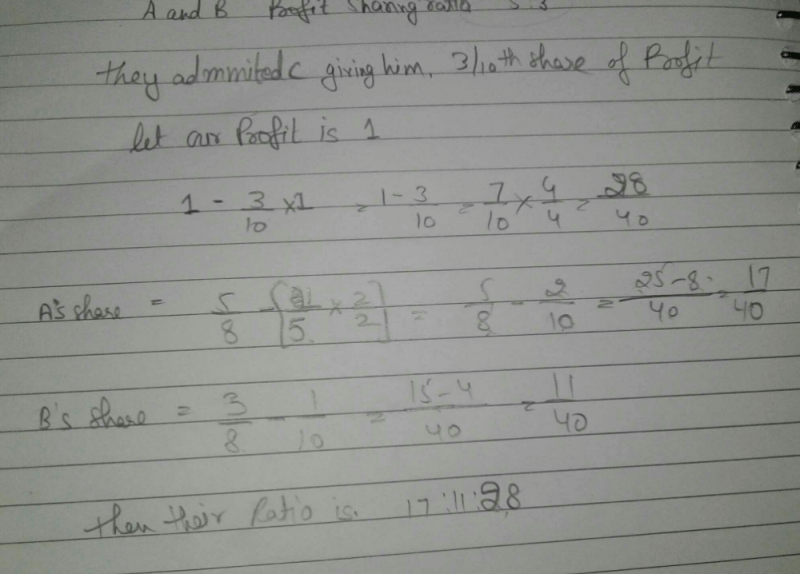 A and B Profit Sharing ratio 5:3
they admmited C giving him, 3/10th share of Profit
let our Profit is 1
1 - 3/10 × 1 = 1-3/10 = 7/10 × 4/4 = 28/40
A's share = 5/8 - [1/5 × 2/2] = 5/8 - 2/10 = 25-8/40 = 17/40
B's share = 3/8 - 1/10 = 15-4/40 = 11/40
then their Ratio is. 17:11:28